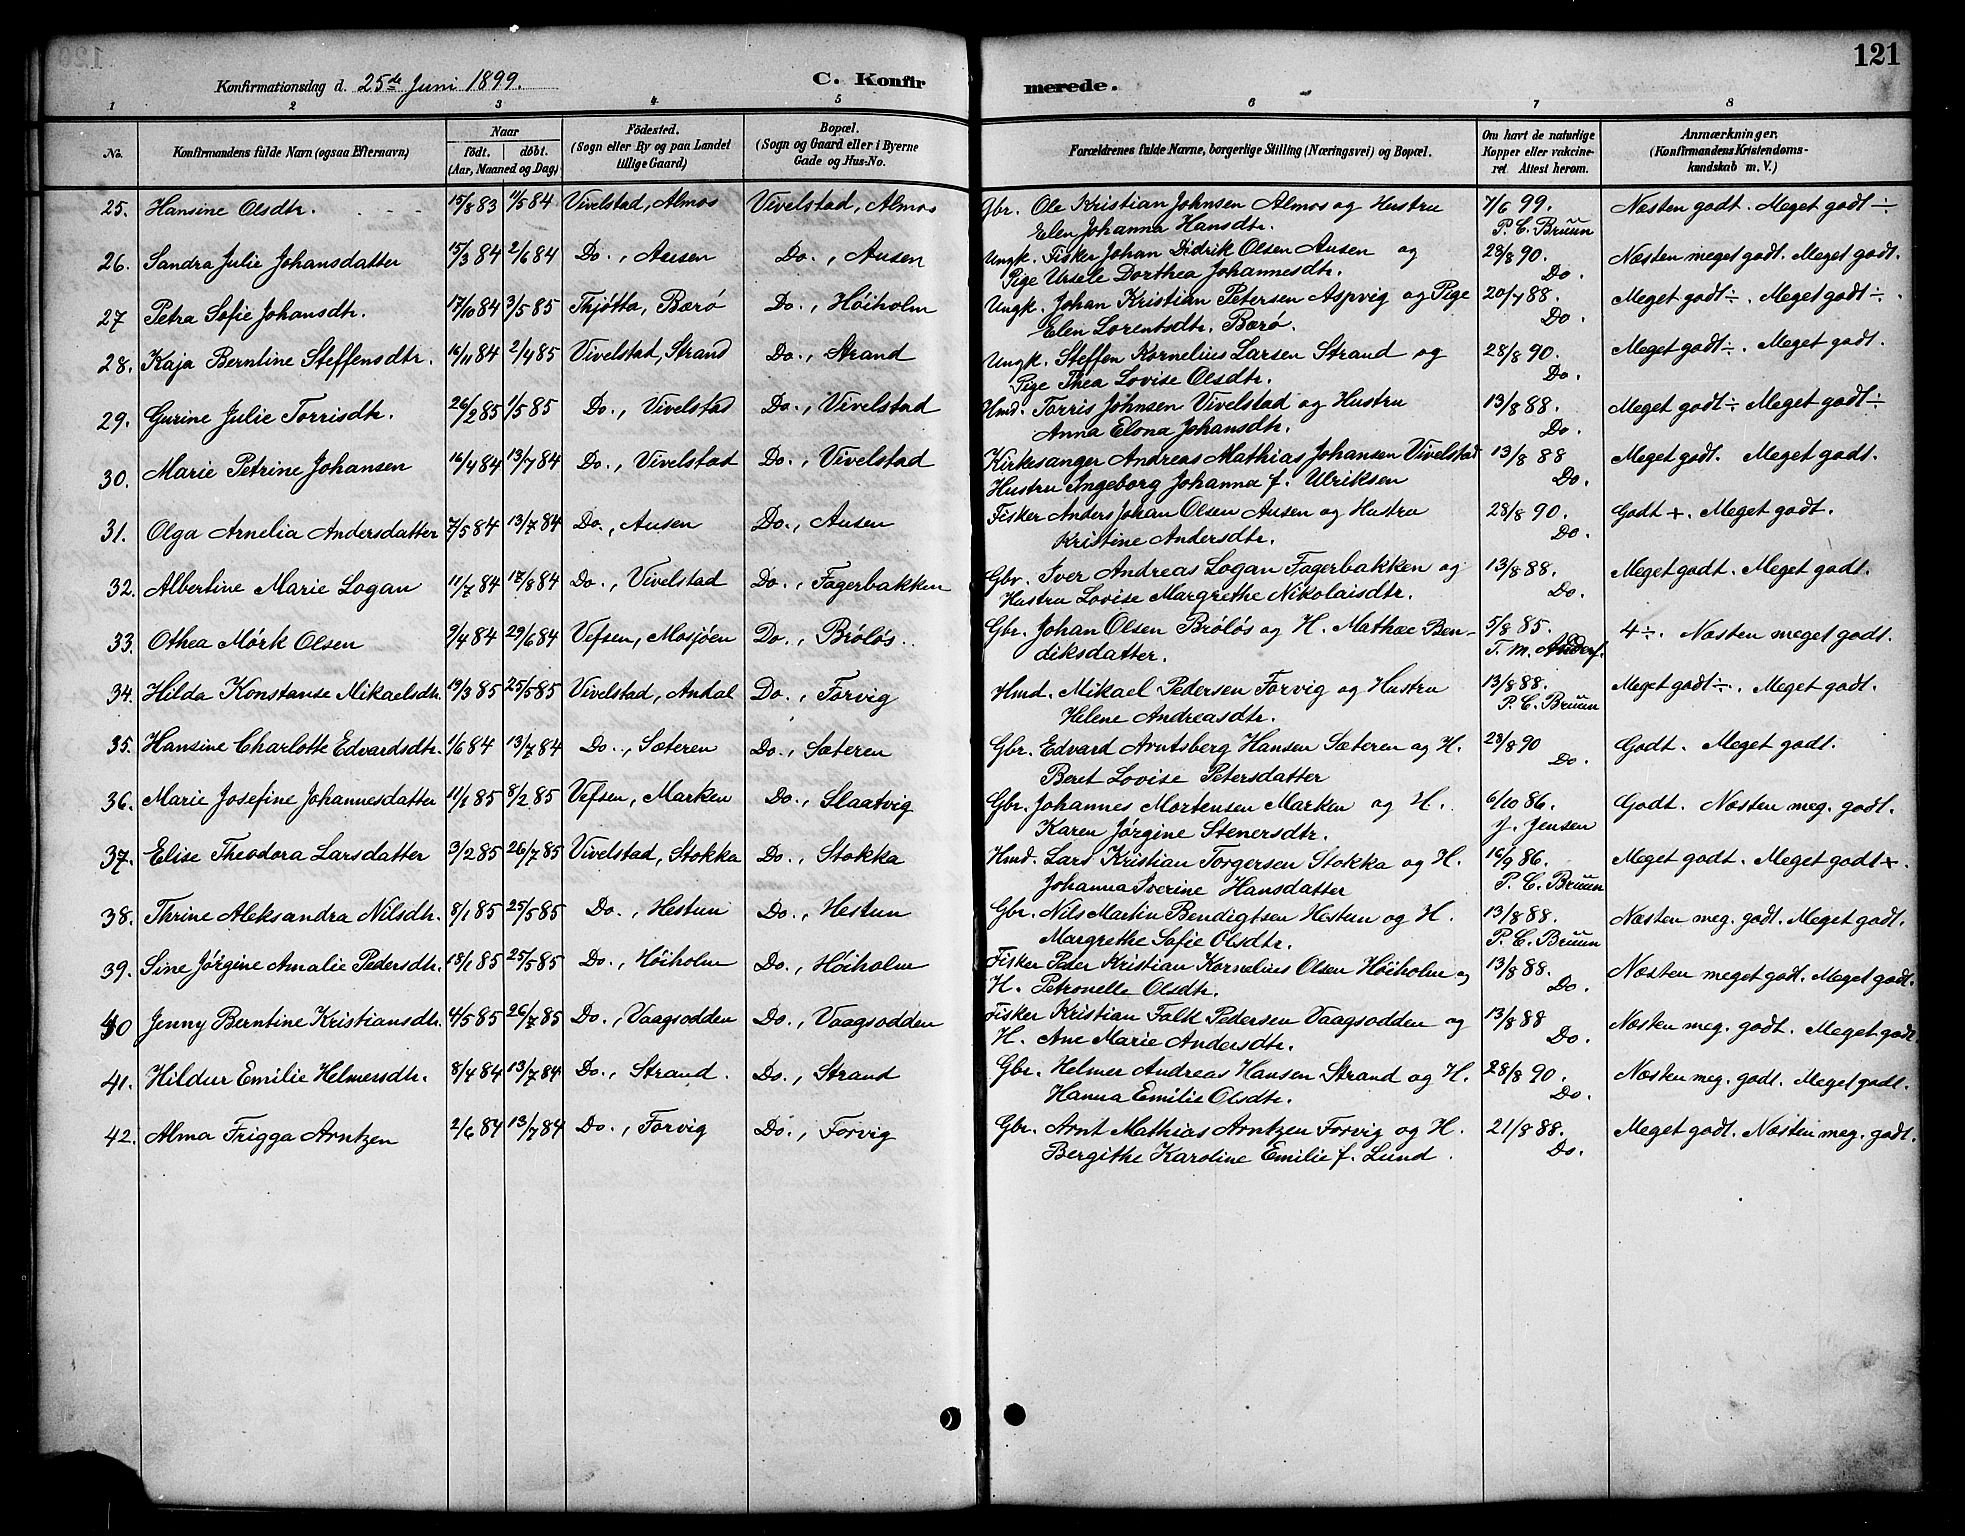 121
Konfirmationsdag d. 25de Juni 1899.
C. Konfirmerede.
1 2 3 4 5 6 7 8
No.
Konfirmandens fulde Navn (ogsaa Efternavn)
Naar
født. døbt.
(Aar, Maaned og Dag)
Fødested.
(Sogn eller By og paa Landet
tillige Gaard)
Bopæl.
(Sogn og Gaard eller i Byerne
Gade og Hus-No.
Forældrenes fulde Navne, borgerlige Stilling (Næringsvei) og Bopæl.
Om havt de naturlige
Kopper eller vakcine-
ret Attest herom.
Anmærkninger.
(Konfirmandens Kristendoms-
kundskab m. V.)
25. Hansine Olsdtr. 15/8 83 1/5 84 Vivelstad, Almos Vivelstad, Almos Gbr. Ole Kristian Johnsen Almos og Hustru 7/6 99. Næsten godt. Meget godt ÷
Elen Johanna Hansdtr. P. C. Bruun
26. Sandra Julie Johansdatter 15/3 84 2/6 84 Do., Ausen Do., Ausen Ungk. Fisker Johan Didrik Olsen Ausen og 28/8 90. Næsten meget godt. Meget godt.
Pige Ursele Dorthea Johannesdtr. Do.
27 Petra Sofie Johansdtr. 17/10 84 3/5 85 Thjøtta, Bærø Do., Høiholm Ungk. Johan Kristian Petersen Aspvig og Pige 20/7 88. Meget godt ÷. Meget godt ÷.
Elen Lorentsdtr. Bærø. Do.
28. Kaja Berntine Steffensdtr. 16/11 84 2/4 85 Vivelstad, Strand Do., Strand Ungk. Steffen Kornelius Larsen Strand og 28/8 90. Meget godt ÷. Meget godt.
Pige Thea Lovise Olsdtr. Do.
29. Gurine Julie Torrisdtr. 26/2 85 1/5 85 Do., Vivelstad Do., Vivelstad Hmd. Torris Johnsen Vivelstad og Hustru 13/8 88. Meget godt ÷ Meget godt ÷
Anna Elona Johansdtr. Do.
30. Marie Petrine Johansen 16/4 84 13/7 84 Do., Vivelstad Do., Vivelstad Kirkesanger Andreas Mathias Johansen Vivelstad 13/8 88 Meget godt. Meget godt.
Hustru Ingeborg Johanna f. Ulriksen Do.
31. Olga Arnelia Andersdatter 7/5 84 13/7 84 Do., Ausen Do., Ausen Fisker Anders Johan Olsen Ausen og Hustru 28/8 90. Godt +. Meget godt.
Kristine Andersdtr. Do.
32. Albertine Marie Logan 11/7 84 17/8 84 Do., Vivelstad Do., Fagerbakken Gbr. Iver Andreas Logan Fagerbakken og 13/8 88. Meget godt. Meget godt.
Hustru Lovise Margrethe Nikolaisdtr. Do.
33. Othea Mørk Olsen 9/4 84 29/6 84 Vefsen, Mosjøen Do., Brøløs. Gbr. Johan Olsen Brøløs og H. Mathæ Ben- 5/8 85. 4 ÷. Næsten meget godt.
diksdatter. T. M.
34. Hilda Konstanse Mikaelsdtr. 19/3 85 25/5 85 Vivelstad, Andal Do., Forvig Hmd. Mikael Pedersen Forvig og Hustru 13/8 88. Meget godt ÷. Meget godt.
Helene Andreasdtr. P. C. Bruun
35. Hansine Charlotte Edvardsdtr. 1/6 84 13/7 84 Do., Sæteren Do., Sæteren Gbr. Edvard Arntsberg Hansen Sæteren og H. 28/8 90 Godt. Meget godt.
Beret Lovise Petersdatter Do.
36. Marie Josefine Johannesdatter 11/1 85 8/2 85 Vefsen, Marken Do., Slaatvig Gbr. Johannes Mortensen Marken og H. 6/10 86. Godt. Næsten meg. godt.
Karen Jørgine Stenersdtr. J. Jensen
37. Elise Theodora Larsdatter 3/2 85 26/7 85 Vivelstad, Stokka Do., Stokka Hmd. Lars Kristian Torgersen Stokka og H. 16/9 86. Meget godt. Meget godt +.
Johanna Iverine Hansdatter P. C. Bruun
38. Thrine Aleksandra Nilsdtr. 8/1 85 25/5 85 Do., Hestun Do., Hestun Gbr. Nils Martin Bendigtsen Hestun og H. 13/8 88. Næsten meg. godt. Meget godt.
Margrethe Sofie Olsdtr. P. C. Bruun
39. Sine Jørgine Amalie Pedersdtr. 13/1 85 25/5 85 Do., Høiholm Do., Høiholm Fisker Peder Kristian Kornelius Olsen Høiholm og 13/8 88. Næsten meget godt. Meget godt.
H. Petronelle Olsdtr. Do.
40 Jenny Berntine Kristiansdtr. 4/5 85 26/7 85 Do., Vaagsodden Do., Vaagsodden Fisker Kristian Falk Pedersen Vaagsodden og 13/8 88 Næsten meg. godt. Meget godt
H. Ane Marie Andersdtr. Do.
41. Hildur Emilie Helmersdtr. 8/4 84 13/7 84 Do., Strand. Do., Strand Gbr. Helmer Andreas Hansen Strand og H. 28/8 90. Næsten meg. godt. Meget godt.
Hanna Emilie Olsdtr. Do.
42. Alma Frigga Arntzen 2/6 84 13/7 84 Do., Forvig Do., Forvig Gbr. Arnt Mathias Arntzen Forvig og H. 21/8 88. Meget godt. Næsten meg. godt.
Bergithe Karoline Emilie f. Lund. Do.